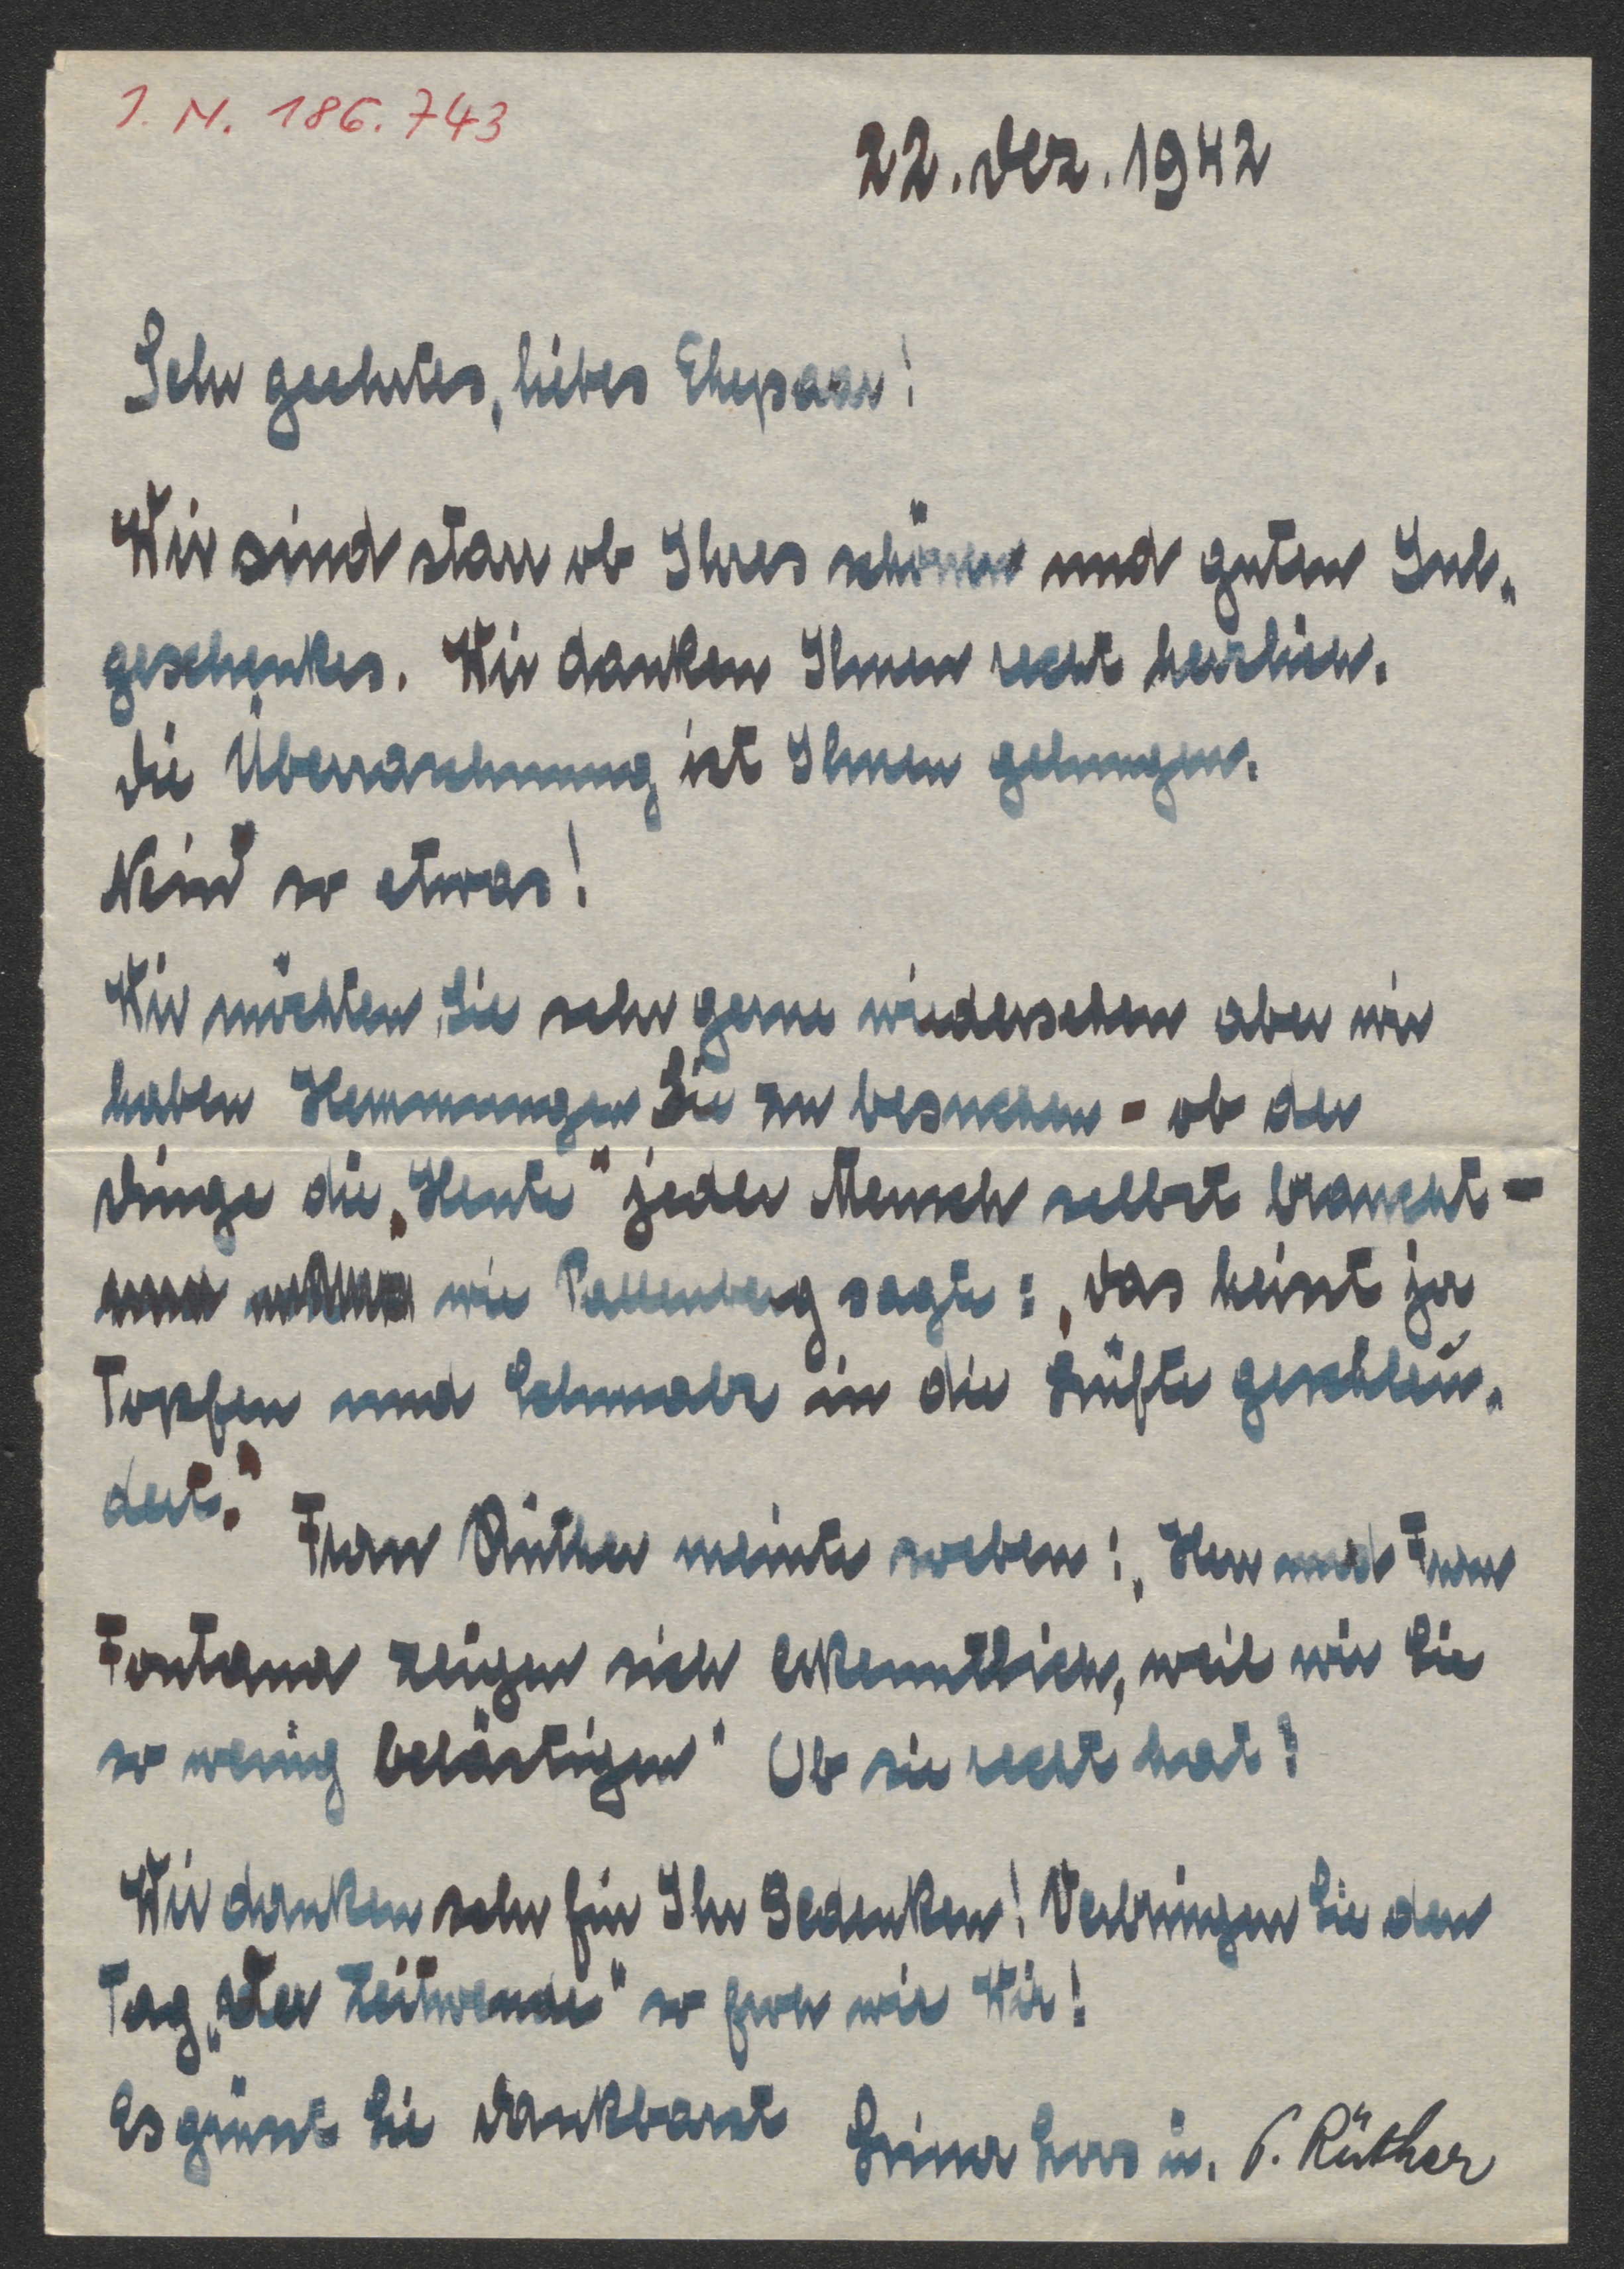 J. N. 186.743
22. Dez. 1942
Sehr geehrtes, liebes Ehepaar!
Wir sind starr ob Ihres schönen und guten Jul-
geschenkes. Wir danken Ihnen recht herzlich.
Die Überraschnung ist Ihnen gelungen.
Nein so etwas!
Wir möchten Sie sehr gerne wiedersehen aber wir
haben Hemmungen Sie zu besuchen - ob der
Dinge die „Heute" jeder Mensch selbst braucht -
wie Pallenberg sagte: „das heisst ja
Topfen und Schmalz in die Lüfte geschleu-
dert."
Frau Rüther meinte soeben: „Herr und Frau
Fontana zeigen sich erkenntlich, weil wir Sie
so wenig belästigen" Ob sie recht hat!
Wir danken sehr für Ihr Gedenken! Verbringen Sie den
Tag „Der Zeitwende" so froh wie Wir!
Es grüsst Sie dankbarst
Lina Loos u. P. Rüther